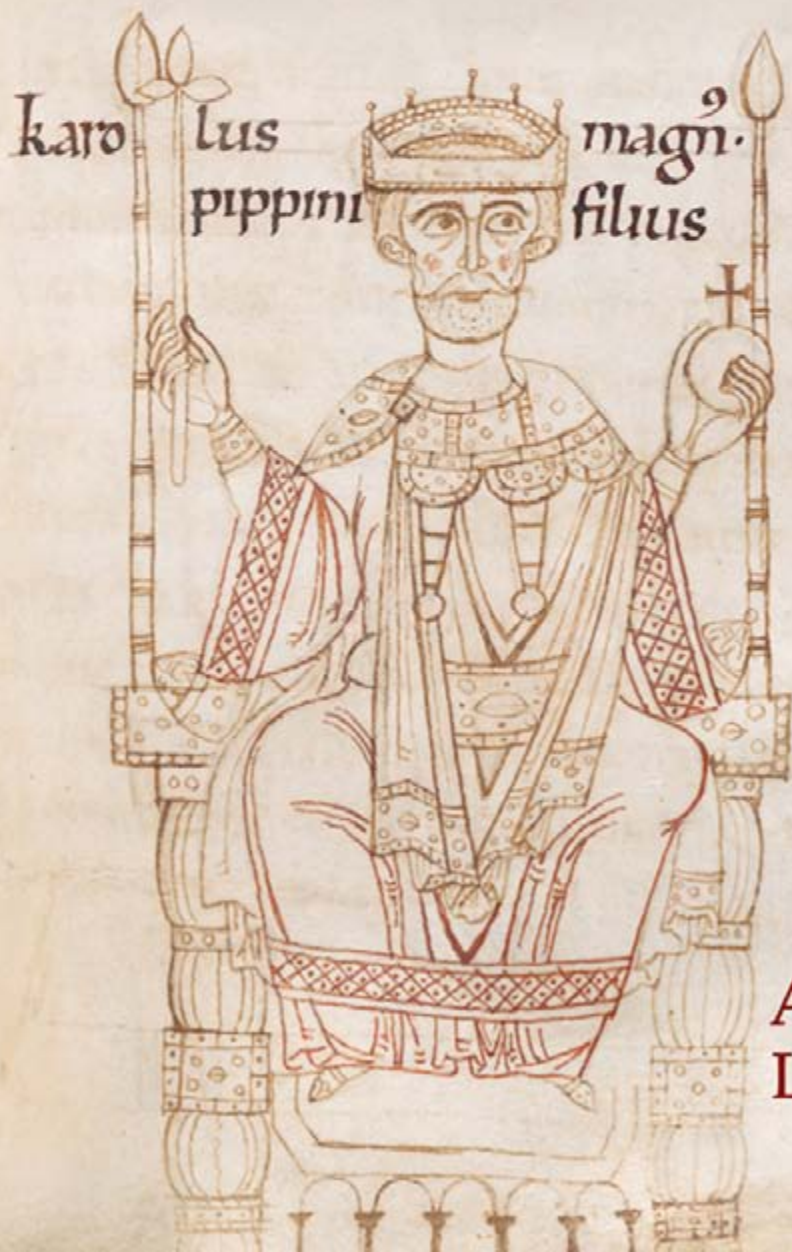 karo lus magn᷒·
pippini filius
A
D